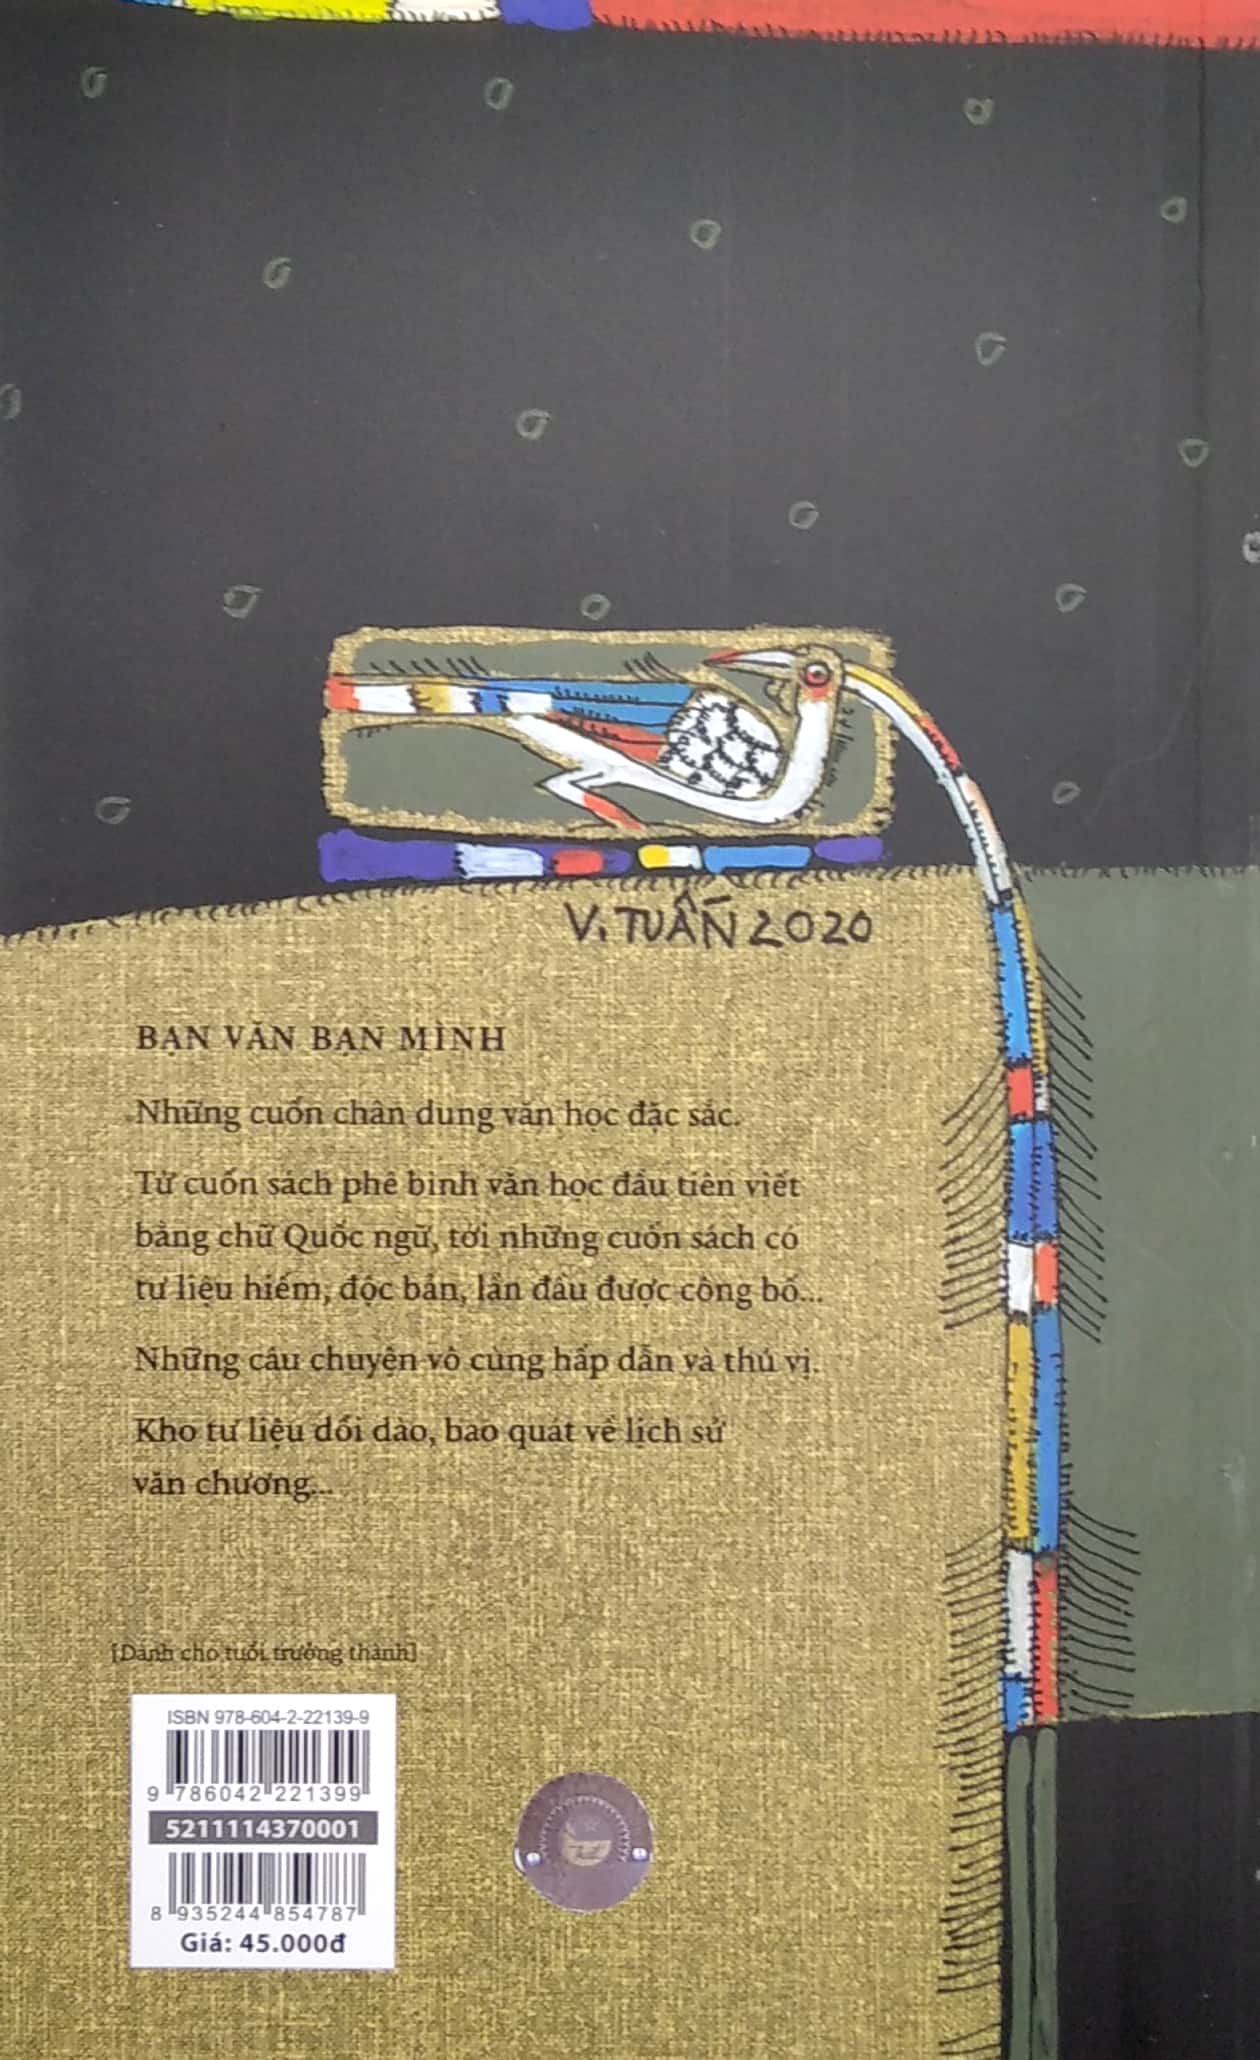 V. TUẤN 2020
BẠN VĂN BẠN MÌNH
Những cuốn chân dung văn học đặc sắc.
Từ cuốn sách phê bình văn học đầu tiên viết
bằng chữ Quốc ngữ, tới những cuốn sách có
tư liệu hiếm, độc bản, lần đầu được công bố...
Những câu chuyện vô cùng hấp dẫn và thú vị.
Kho tư liệu dồi dào, bao quát về lịch sử
văn chương...
[Dành cho tuổi trưởng thành]
ISBN 978-604-2-22139-9
9 786042 221399
5211114370001
8 935244 854787
Giá: 45.000đ